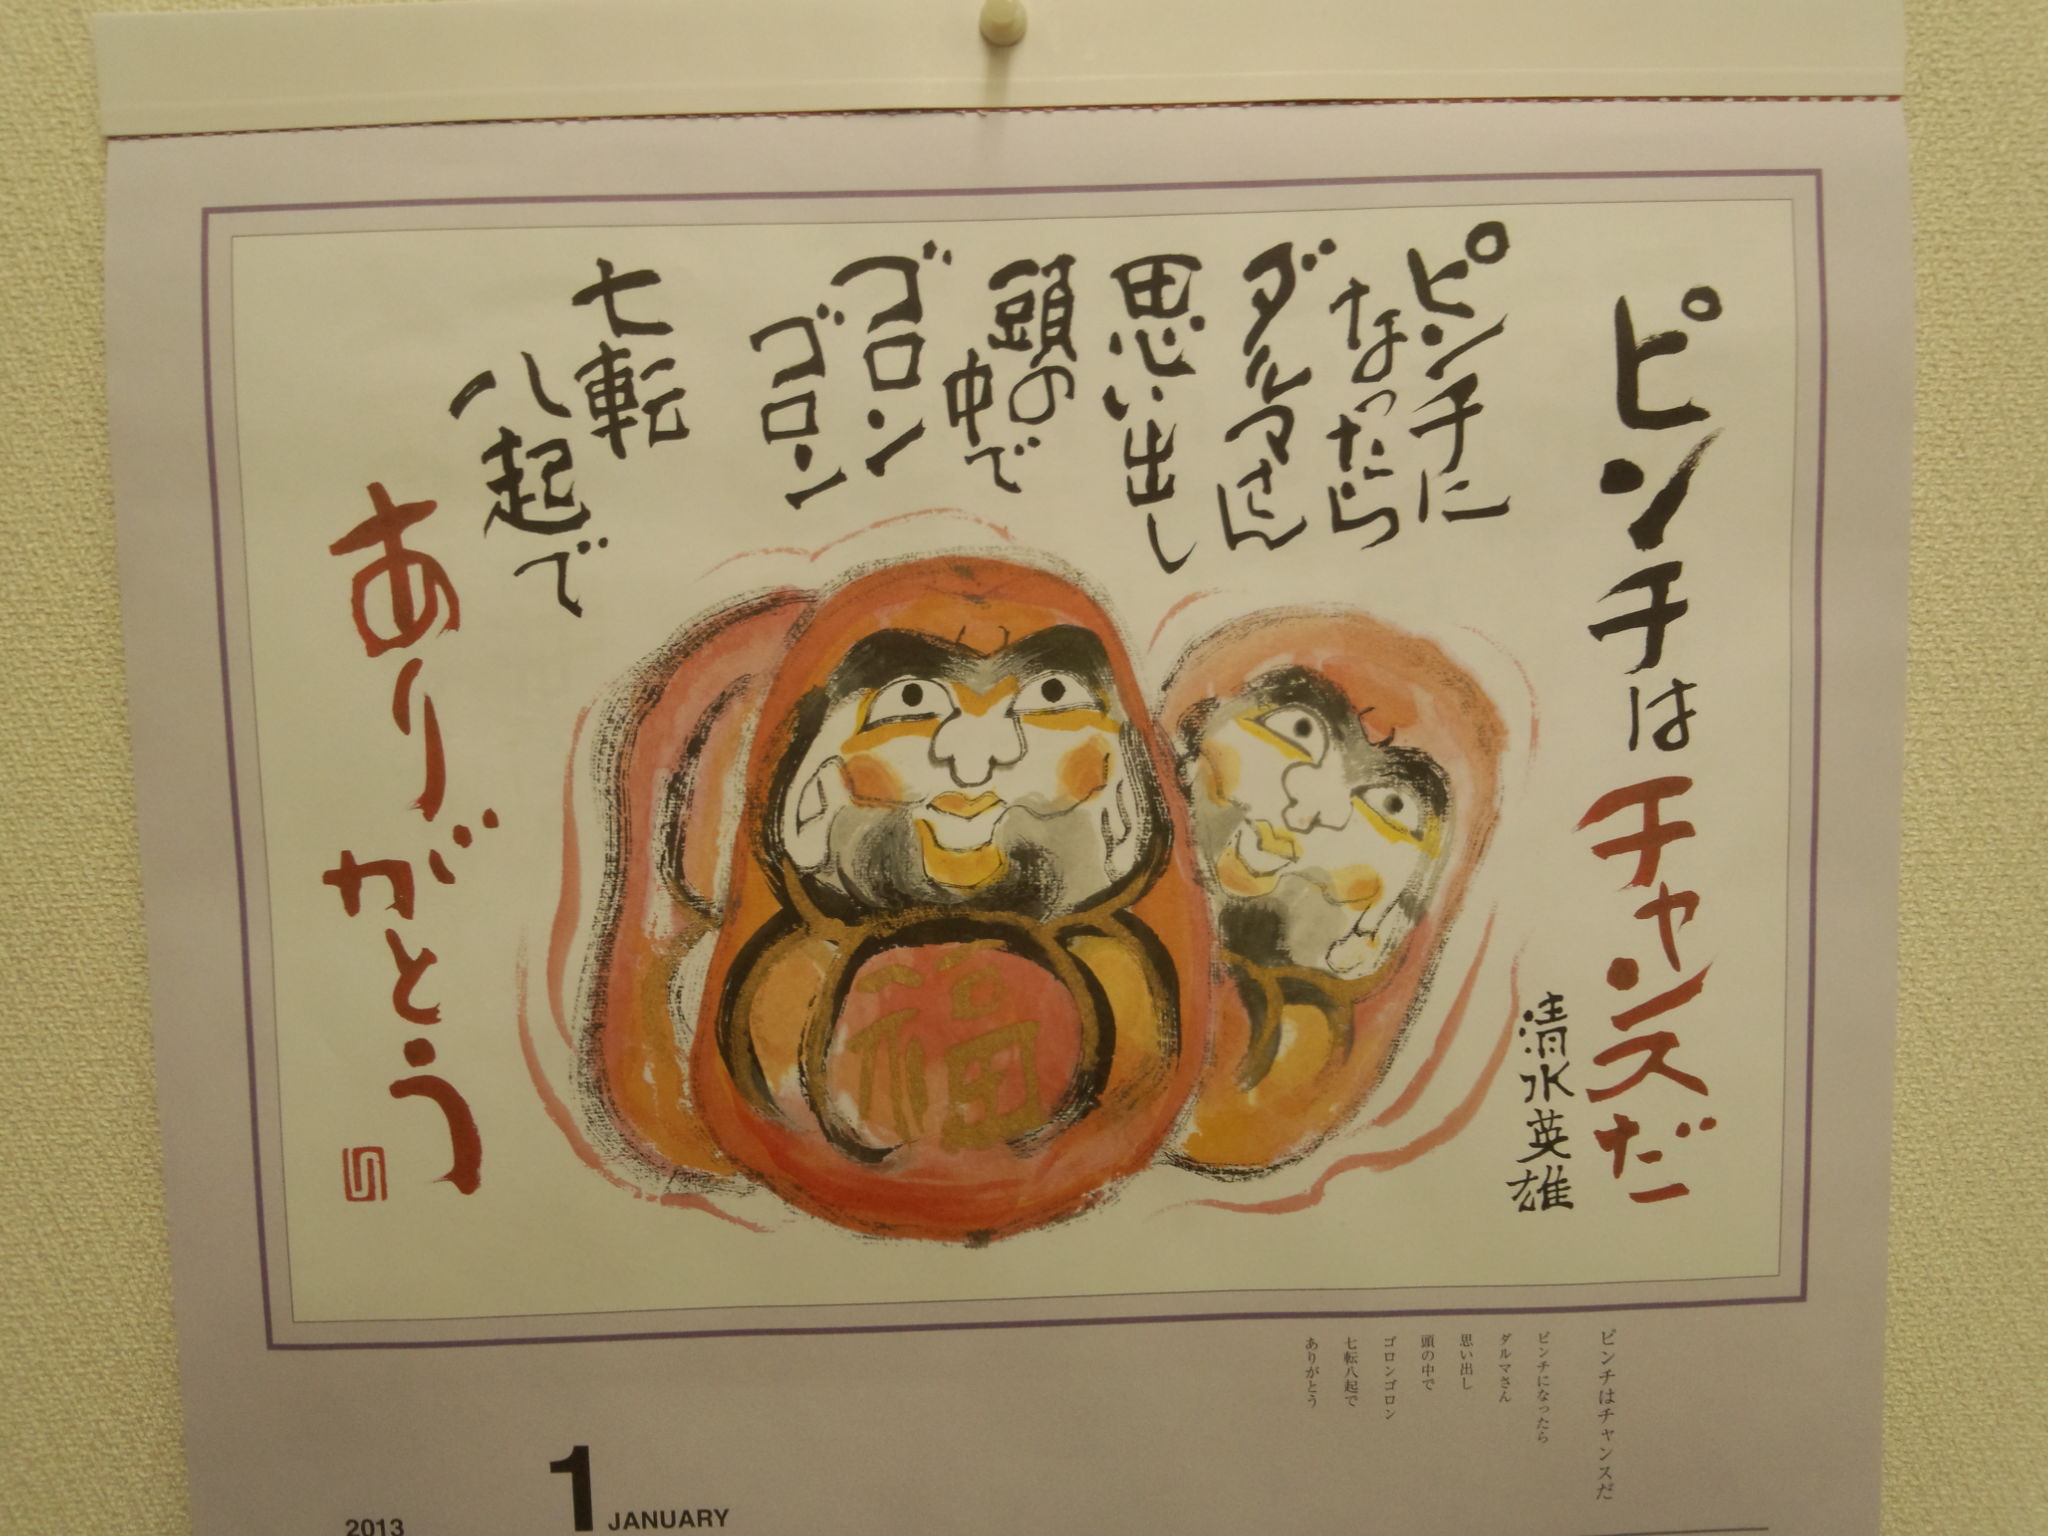 ピンチはチャンスだ
清水英雄
ピンチに
なったら
ダルマさん
思い出し
頭の
中で
ゴロン
ゴロン
七転
八起で
ありがとう
福
ピンチはチャンスだ
ピンチになったら
ダルマさん
思い出し
頭の中で
ゴロンゴロン
七転八起で
ありがとう
2013
1 JANUARY